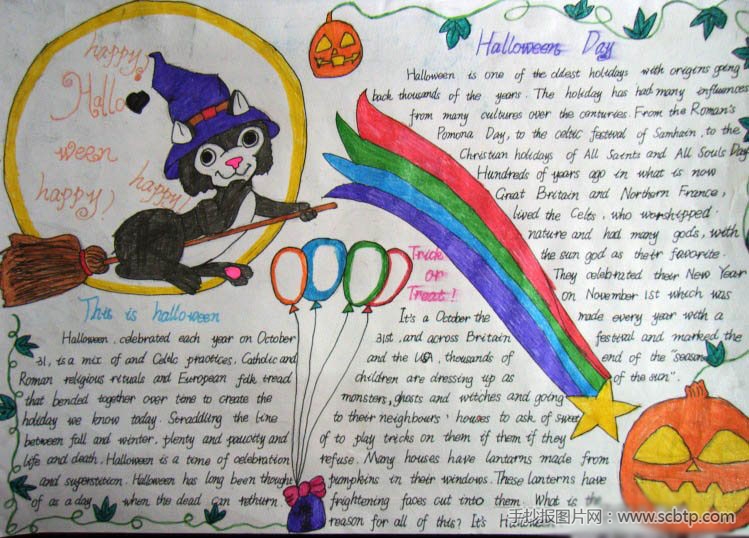 happy!
Hallo
ween
happy!
happy!
Halloween Day
Halloween is one of the oldest holidays with origins going
back thousands of the years. The holiday has had many influences
from many cultures over the centuries. From the Roman's
Pomona Day, to the celtic festival of Samhain, to the
Christian holidays of All Saints and All Souls Day
Hundreds of years ago in what is now
Great Britain and Northern France,
lived the Celts, who worshipped
nature and had many gods, with
the sun god as their favorite.
They celebrated their New Year
on November 1st which was
made every year with a
festival and marked the
end of the season
of the sun".
This is halloween
Halloween, celebrated each year on October
31, is a mix of and Celtic practices, Catholic and
Roman religious rituals and European folk tread
that bended together over time to create the
holiday we know today. Straddling the line
between fall and winter, plenty and paucity and
life and death, Halloween is a time of celebration
and superstition. Halloween has long been thought
of as a day when the dead can rethurn.
Trick
or
Treat!
It's a October the
31st, and across Britain
and the USA, thousands of
children are dressing up as
monsters, ghosts and witches and going
to their neighbours' houses to ask of sweet
of to play tricks on them if them if they
refuse. Many houses have lantarns made from
pumpkins in their windows. These lanterns have
frightening faces cut into them. What is the
reason for all of this? It's
手抄报图片网：www.scbtp.com